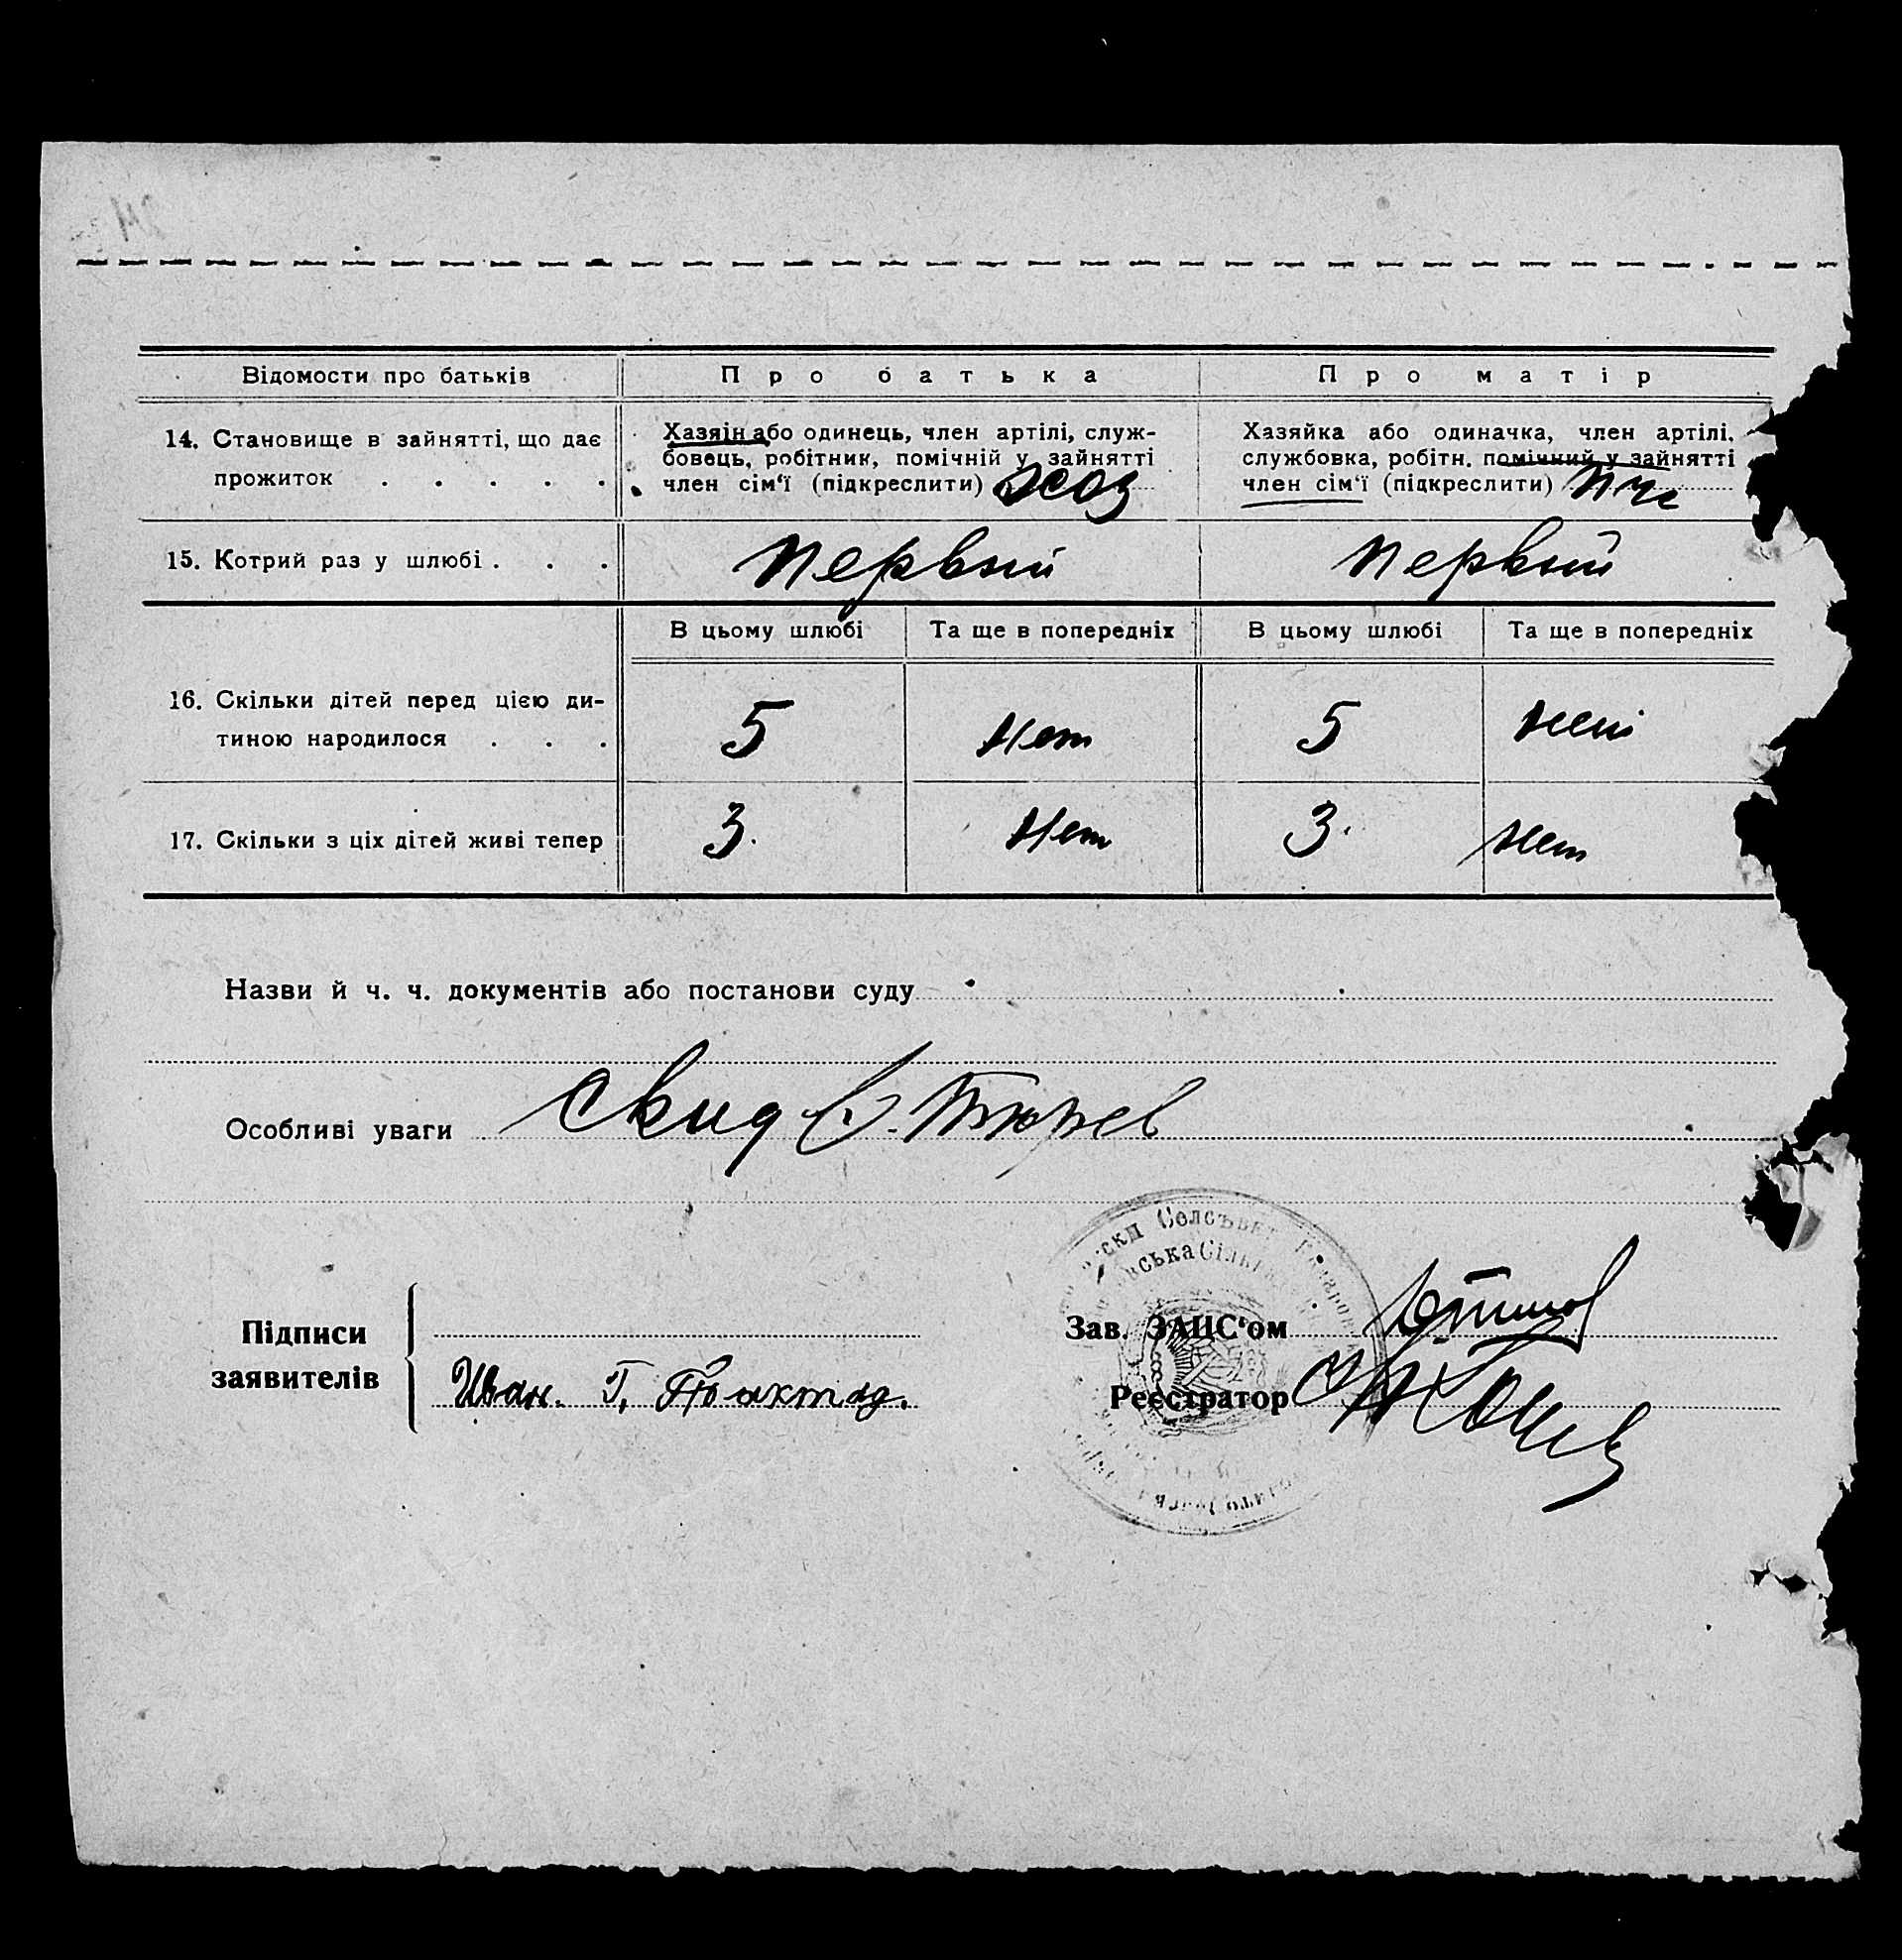 Відомости про батьків
Про батька
Про матір
14. Становище в зайнятті, що дає
прожиток . . . . .
Хазяін або одинець, член артілі, служ-
бовець, робітник, помічній у зайнятті
член сім‘ї (підкреслити) Хоз
Хазяйка або одиначка, член артілі,
службовка, робітн. помічний у зайнятті
член сім‘ї (підкреслити) Пчс
15. Котрий раз у шлюбі . . .
Первый
Первый
В цьому шлюбі
Та ще в попередніх
В цьому шлюбі
Та ще в попередніх
16. Скільки дітей перед цією ди-
тиною народилося . . .
5
Нет
5
Нет
17. Скільки з ціх дітей живі тепер
3.
Нет
3.
Нет
Назви й ч. ч. документів або постанови суду
Особливі уваги
Підписи
заявителів
Иван. Г.
Зав. ЗАПС‘ом
Реєстратор